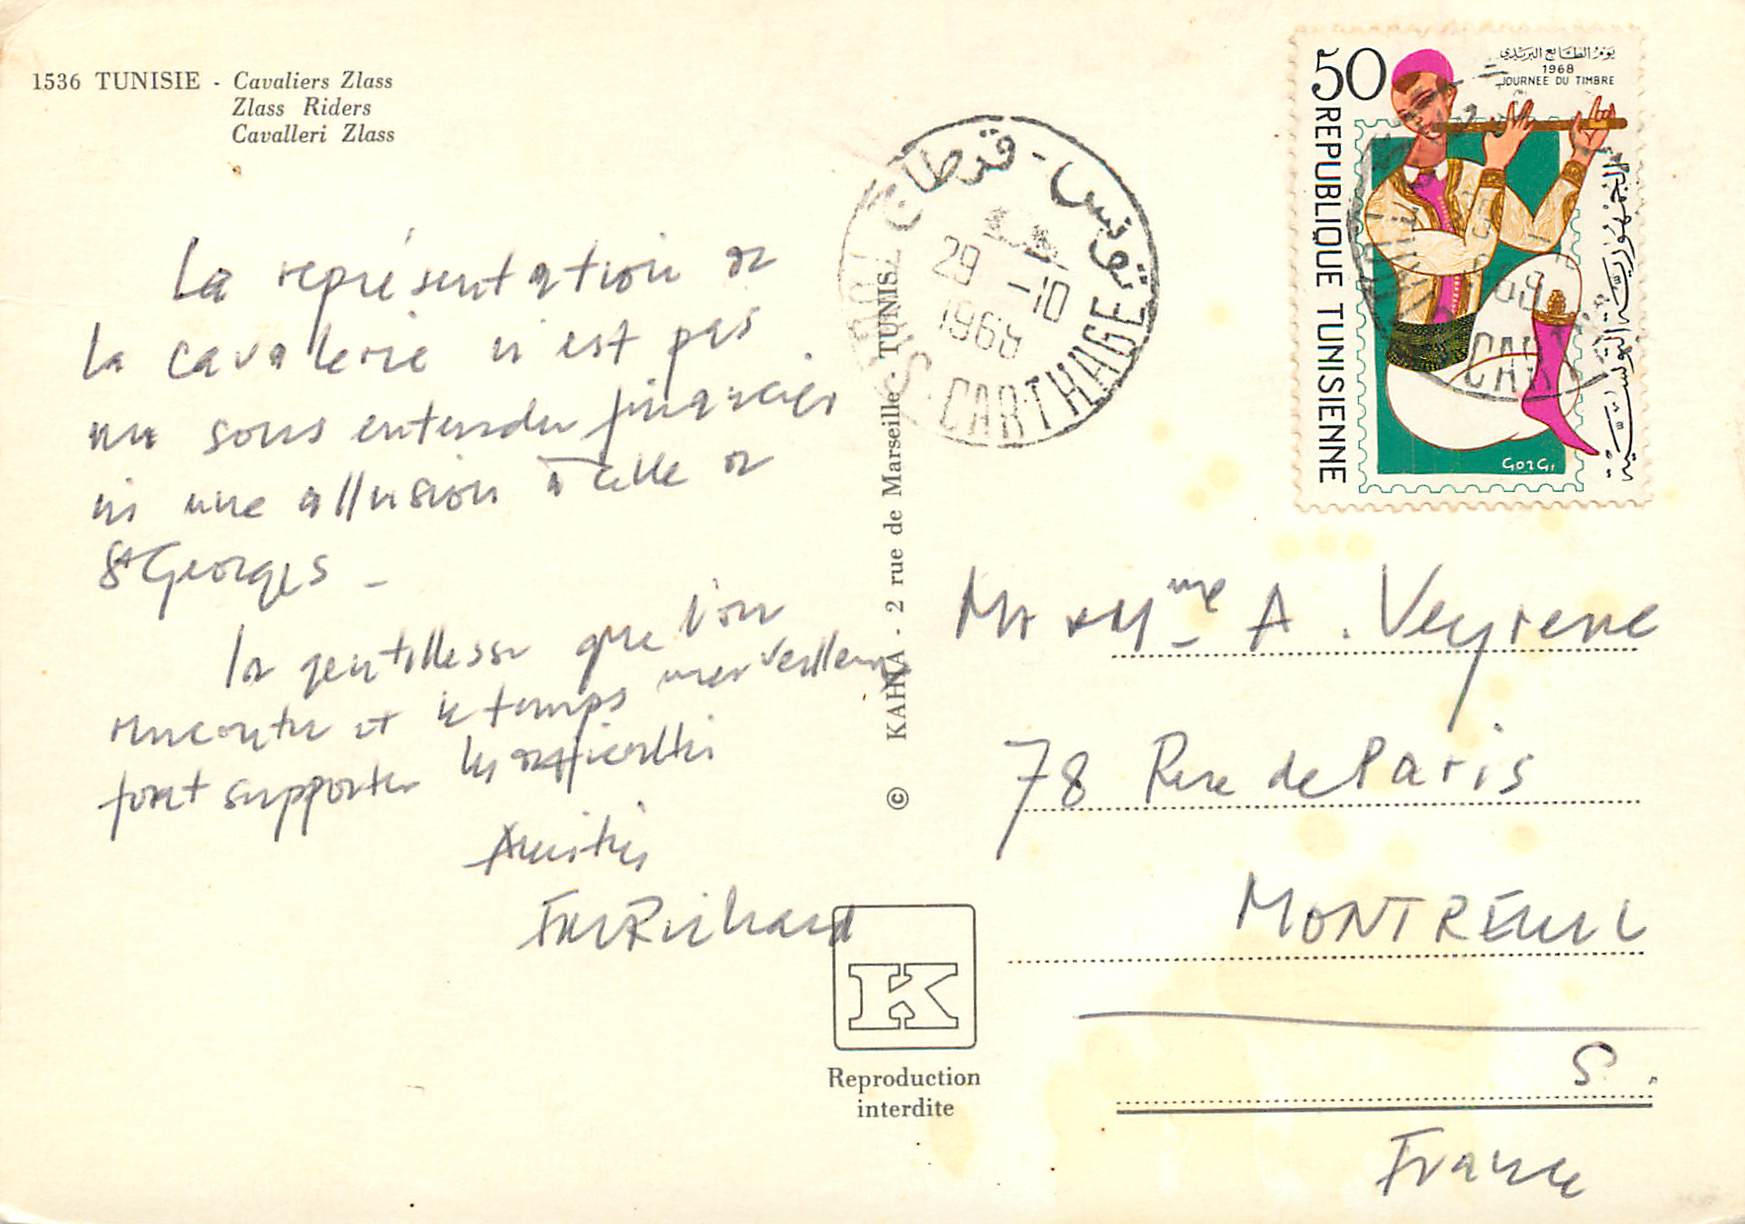 1536 TUNISIE - Cavaliers Zlass
Zlass Riders
Cavalleri Zlass
La représentation de
la cavalerie n'est pas
un sous entendu financier
ni une allusion à celle de
St Georges -
la gentillesse que l'on
rencontre et le temps merveilleux
font supporter les difficultés
Amitiés
Richard
© KAHIA - 2 rue de Marseille - TUNIS
K
Reproduction
interdite
تونس - قرطاج
29 -10
1968
TUNIS - CARTHAGE
50
يوم الطابع البريدي
1968
JOURNEE DU TIMBRE
REPUBLIQUE TUNISIENNE
الجمهورية التونسية
GORGI
Mr & Mme A. Veyrene
78 Rue de Paris
MONTREUIL
S.
France